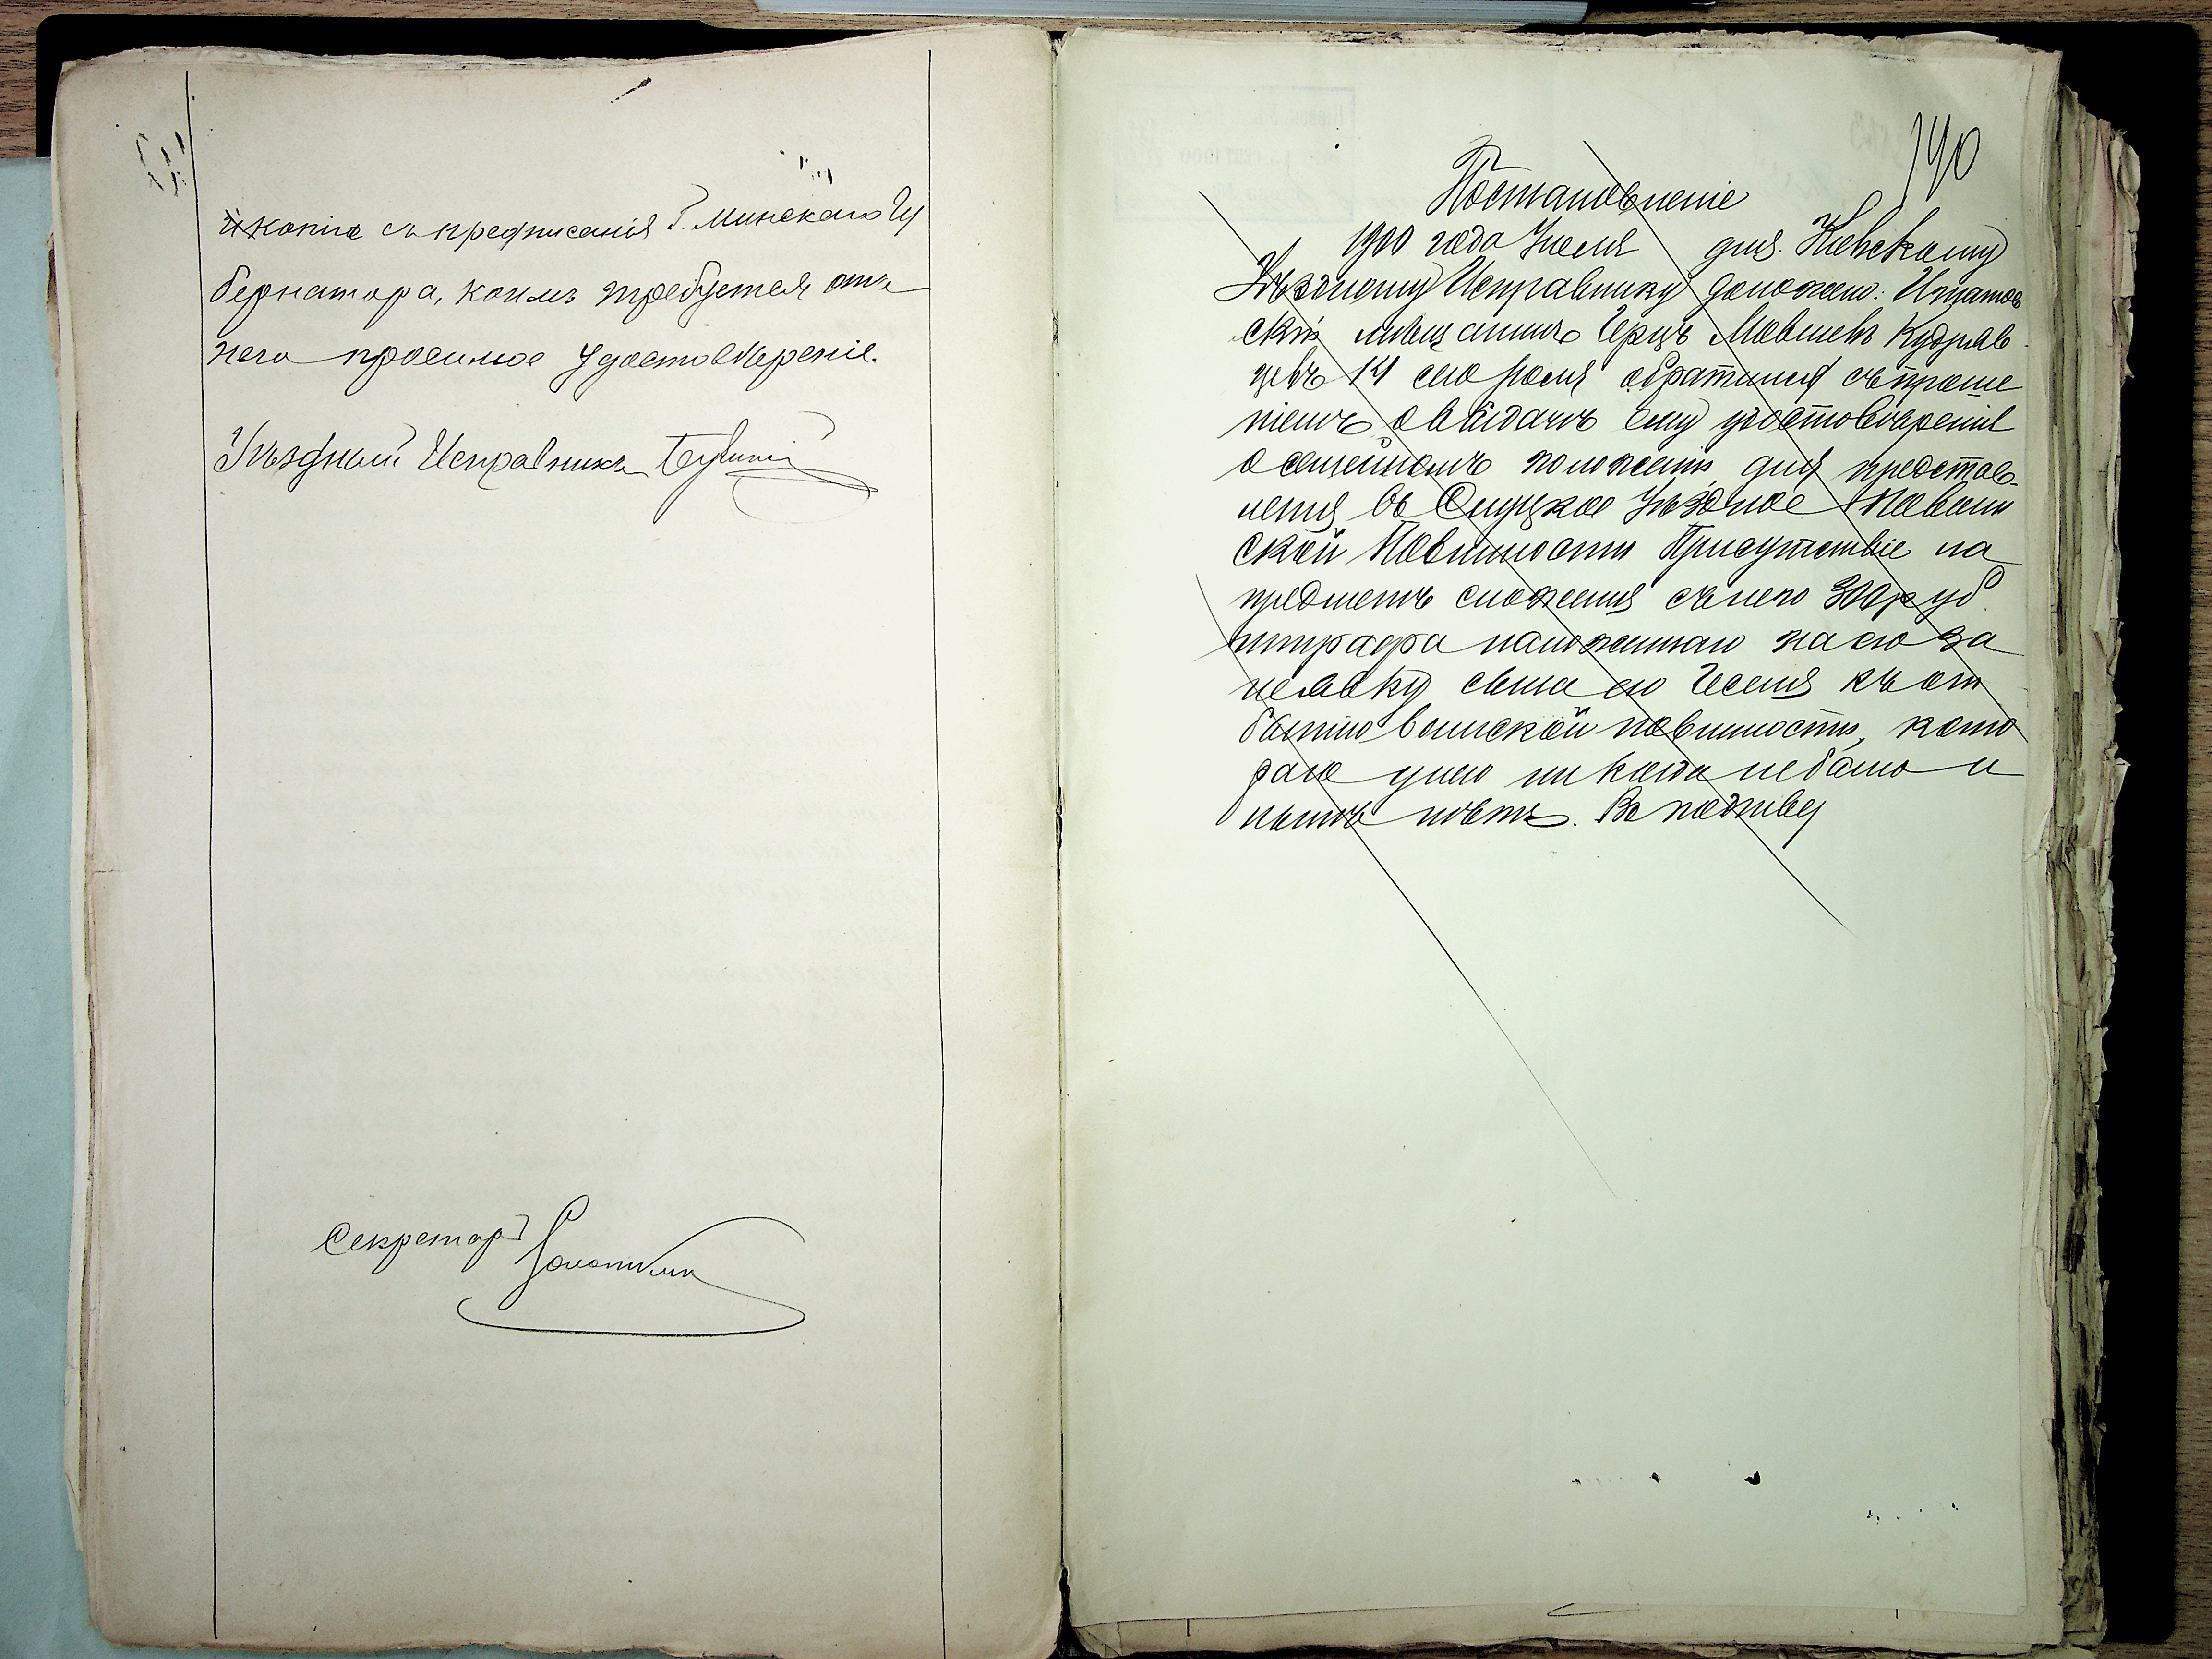 копія съ предписанія Г. Минскаго Гу
бернатора, коимъ требуется отъ
него просимое удостовѣреніе.
Уѣздный Исправникъ
Секретарь
190
Постановленіе
1900 года Іюля дня. Кіевскому
Уѣздному Исправнику доложено: Игнатов
скій мѣщанинъ Герцъ Мовшевъ Кудряв
цевъ 14 сего Іюля обратился съ проше
ніемъ о выдачѣ ему удостовѣренія
о семейномъ положеніи, для представ-
ленія въ Слуцкое Уѣздное по Воин
ской Повинности Присутствіе на
предметъ сложенія съ него 300 руб
штрафа наложеннаго на него за
неявку сына его Евселя къ от
бытію воинской повинности, кото
раго у него никогда не было и
нынѣ нѣтъ. Въ подтвер